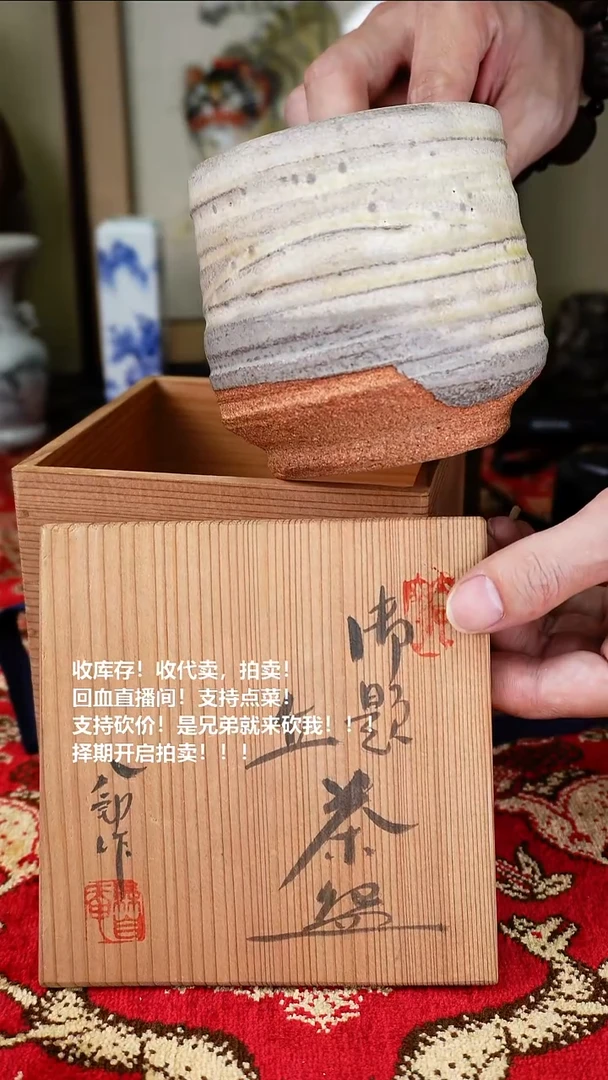 御題
丘
茶盌
作
收库存！收代卖，拍卖！
回血直播间！支持点菜！
支持砍价！是兄弟就来砍我！！！
择期开启拍卖！！！